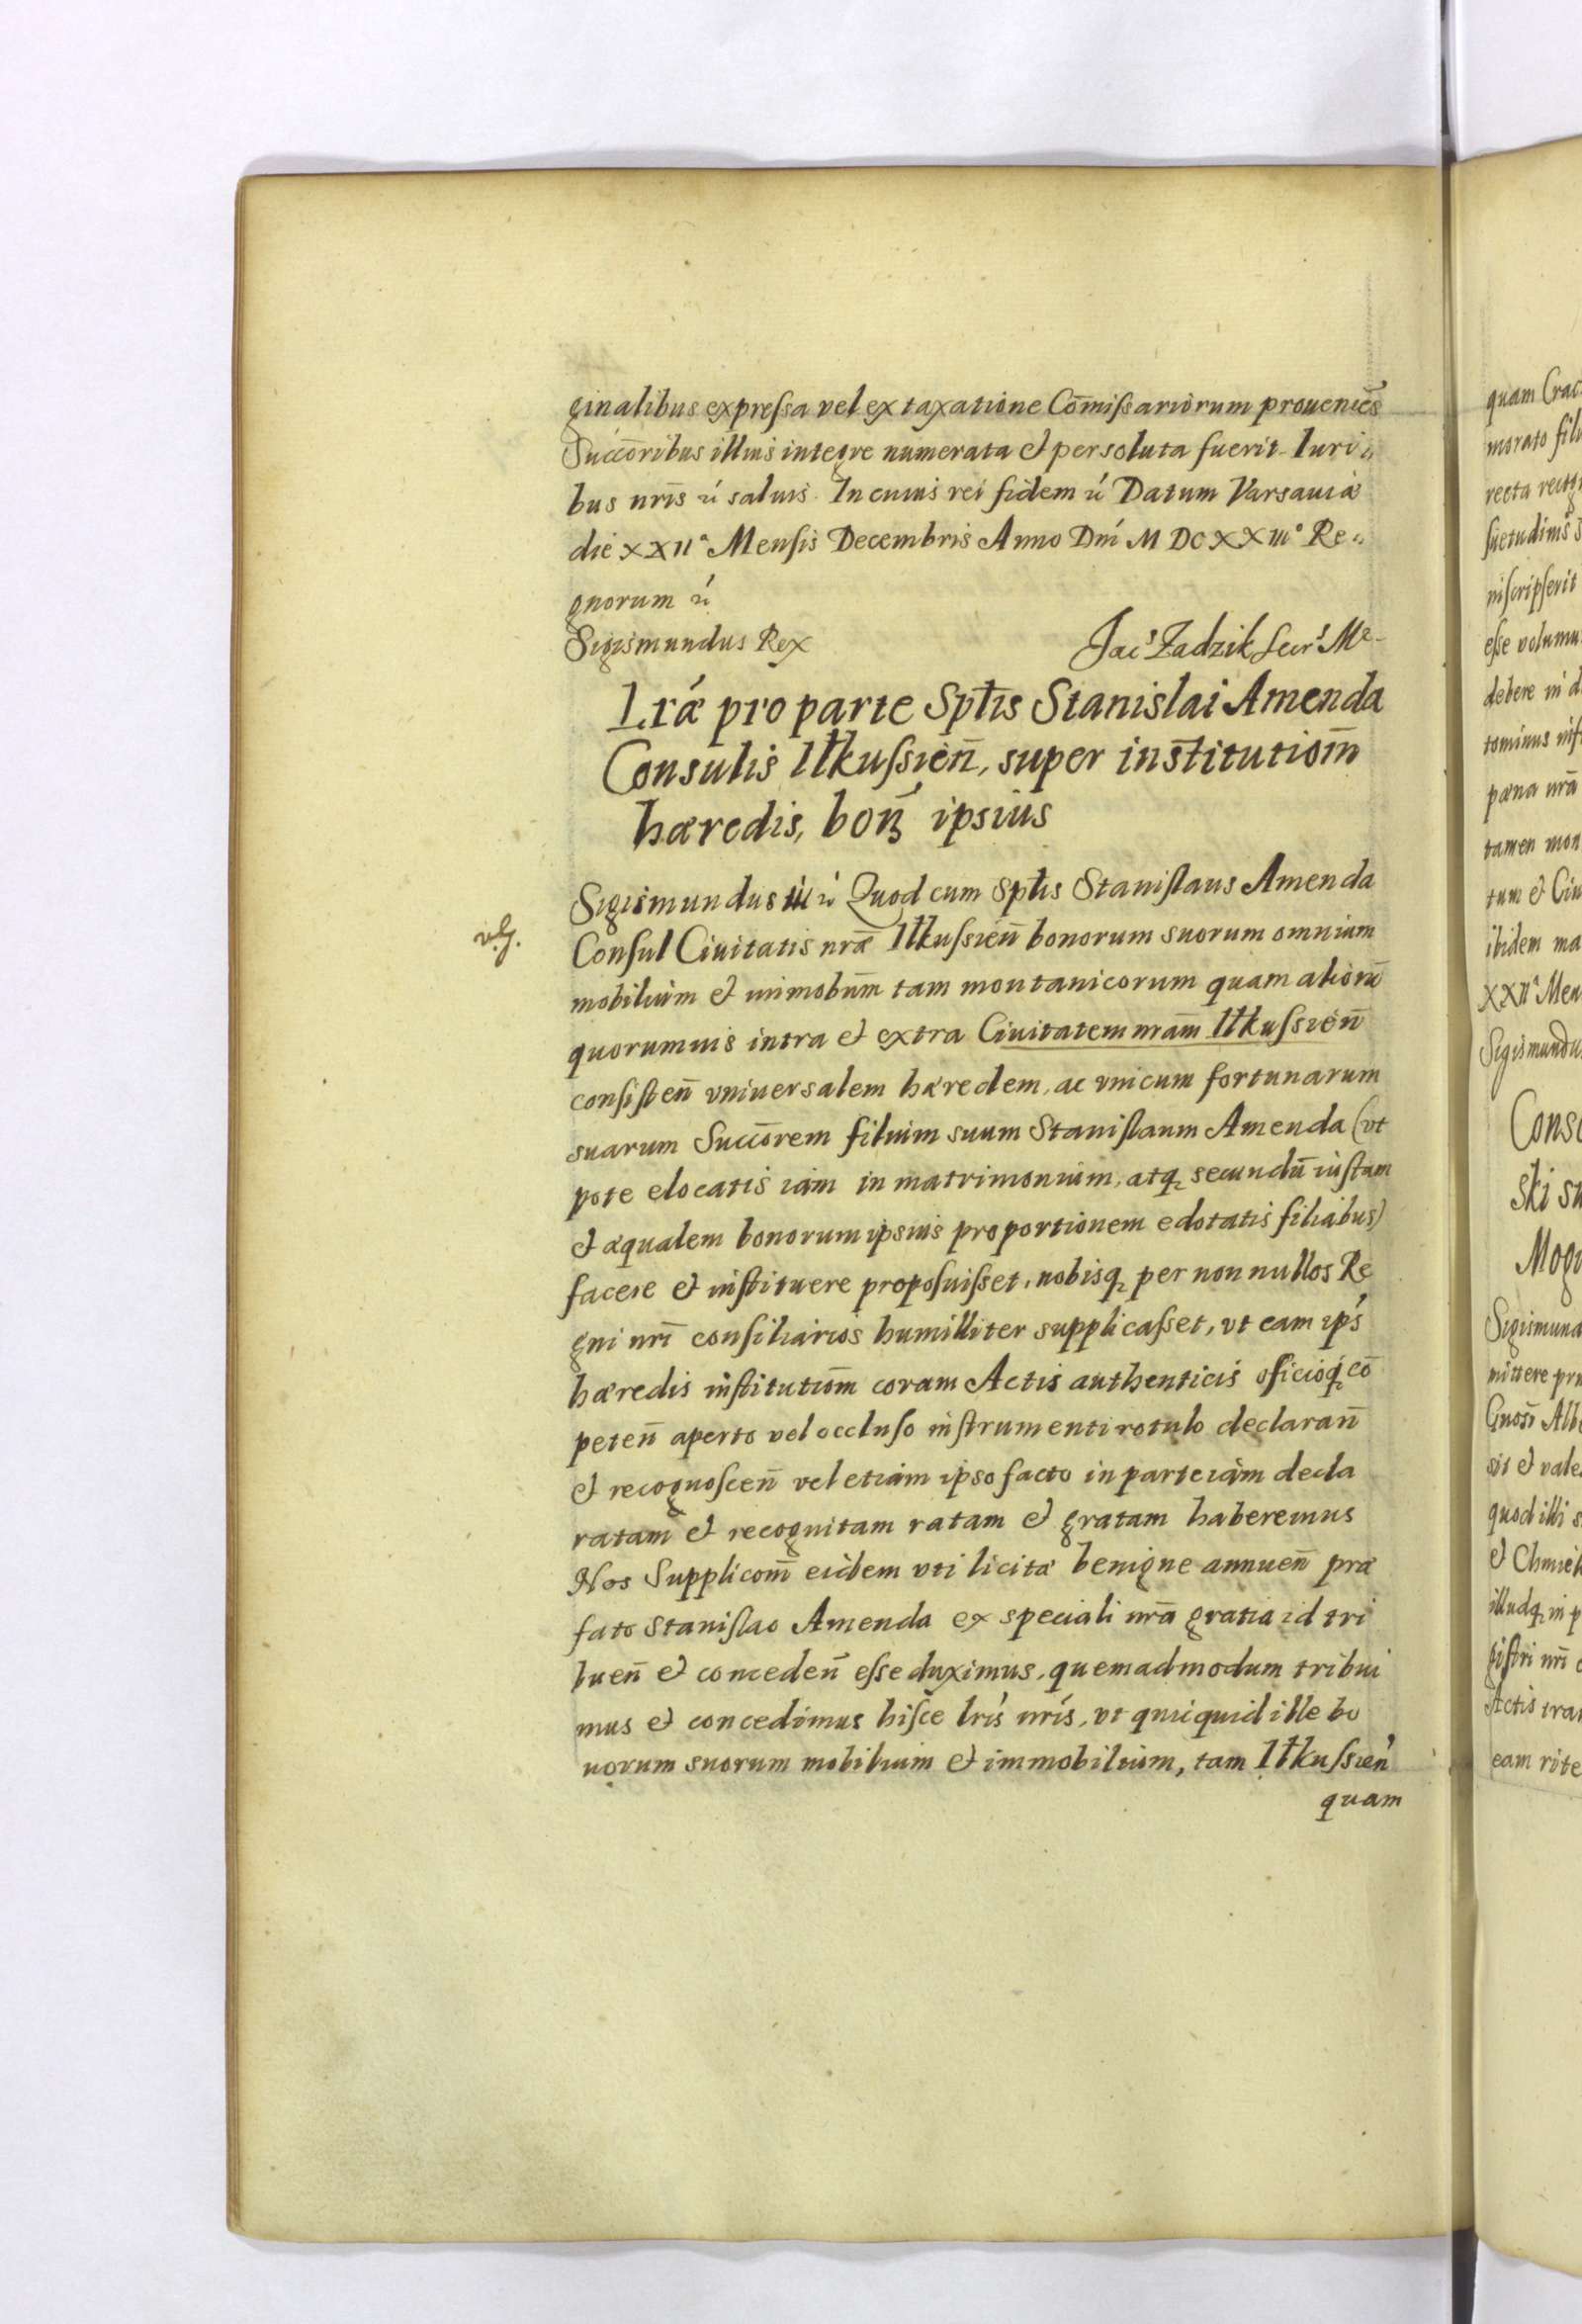 ginalibus expressa vel ex taxatione Cōmissariorum proueniēs
Succōribus illius integre numerata et persoluta fuerit. Iuri„
bus nrīs ꝛć saluis. In cuius rei fidem ꝛć Datum Varsauiæ
die XXIIa Mensis Decembris Anno Dnī M DC XX IIIo Re„
gnorum ꝛć
Sigismundus Rex
Jac: Zadzik Secr: Mr
Lrǽ pro parte Spt̄is Stanislai Amenda
Consulis Ilkussień, super institutiom̄
hæredis, bonꝝ ipsius
Sigismundus III ꝛć Quod cum Spt̄is Stanislaus Amenda
vlg.
Consul Ciuitatis nrǣ Ilkussień bonorum suorum omnium
mobilium et immobiūm tam montanicorum quam aliorū
quorumuis intra et extra Ciuitatem nram̄ Ilkussień
consisteñ vniuersalem hæredem, ac vnicum fortunarum
suarum Succōrem filium suum Stanislaum Amenda (vt
pote elocatis iam in matrimonium, atq₃ secundū iustam
et æqualem bonorum ipsius proportionem edotatis filiabus)
facere et instituere proposuisset, nobisq₃ per non nullos Re
gni nrī consiliarios humilliter supplicasset, vt eam ips̄
hæredis institutiom̄ coram Actis authenticis oficioq₃ cō
peteñ aperto vel occluso instrumenti rotulo declarañ
et recognosceñ vel etiam ipso facto in parte iam decla
ratam et recognitam ratam et gratam haberemus
Nos Supplicom̄ eidem vti licitæ benigne annueñ præ
fato Stanislao Amenda ex speciali nrā gratia id tri
bueñ et concedeñ esse duximus, quemadmodum tribui
mus et concedimus hisce lrīs nrīs, vt quicquid ille bo
norum suorum mobilium et immobilium, tam Ilkussień
quam
quam Crac
morato fil
recta
suetudinis
niscripserit
esse volumu
debere in d
pæna nrā
tamen mon
tum et Ciu
ibidem ma
XXIIa Men
Sigismundu
Cons
ski su
Mogi
Sigismund
mittere pr
Gnosī Alb
sit et vale
quod illi s
et Chmiel
illudq₃ in p
gistri nrī
Actis
eam rite